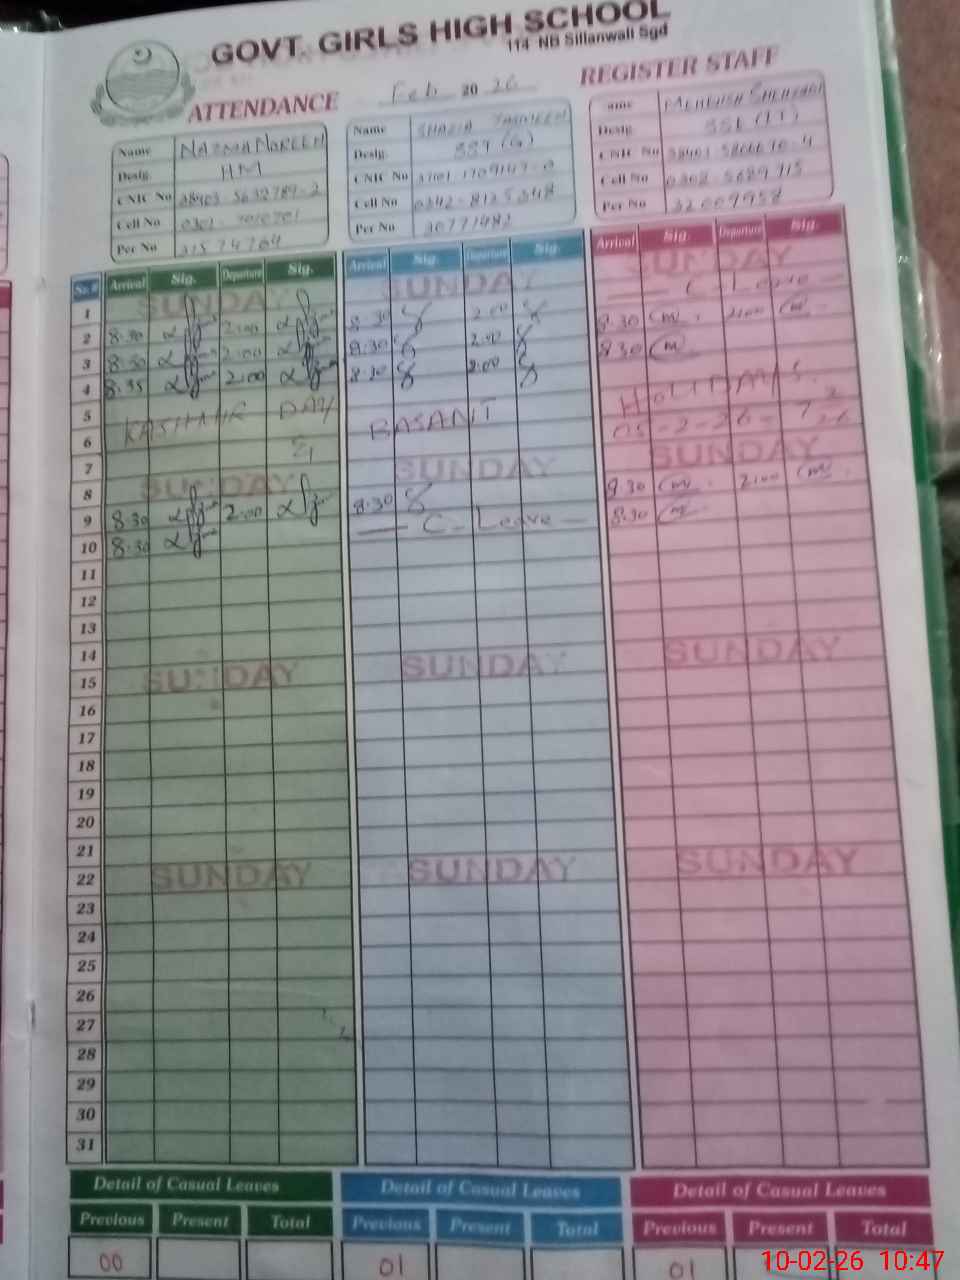 GOVT. GIRLS HIGH SCHOOL
114 NB Sillanwali Sgd
ATTENDANCE Feb 20 26 REGISTER STAFF
Name NAZMA NOREEN
Desig. HM
CNIC No
Cell No
Per No 31574764
Name SHAZIA
Desig.
CNIC No
Cell No 0342-8125348
Per No 30771482
ame MEHWISH
Desig.
CNIC No
Cell No 0302-5689715
Per No 32009958
Arrival Sig. Departure Sig. Arrival Sig. Departure Sig. Arrival Sig. Departure Sig.
1 SUNDAY SUNDAY SUNDAY
2 8.30 2:00 8.30 2.00 C. Leave
3 8.30 2:00 8:30 2:00 8.30 2:00
4 8.35 2:00 8:30 2:00 8.30
5 KASHMIR DAY
6 BASANT HOLIDAYS
7 05-2-26
8 SUNDAY SUNDAY SUNDAY
9 8.30 2:00 8.30 8.30 2:00
10 8.30 C. Leave 8.30
11
12
13
14
15 SUNDAY SUNDAY SUNDAY
16
17
18
19
20
21
22 SUNDAY SUNDAY SUNDAY
23
24
25
26
27
28
29
30
31
Detail of Casual Leaves Detail of Casual Leaves Detail of Casual Leaves
Previous Present Total Previous Present Total Previous Present Total
00 01 01
10-02-26 10:47